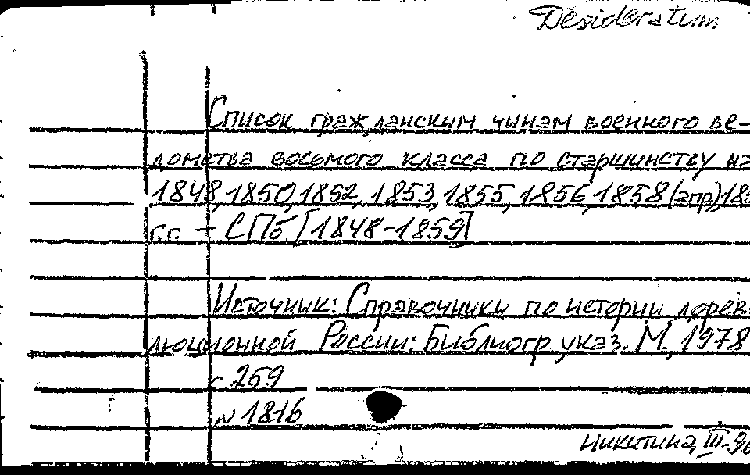 Desideratum
Список гражданским чинам военного ве-
домства восьмого класса по старшинству на
1848, 1850, 1852, 1853, 1855, 1856, 1858 (апр), 185
г.г. – СПб [1848-1859]
Источник: Справочники по истории дорев-
люционной России: Библиогр. указ. М., 1978
с 259
№ 1816
Никитина, III-9